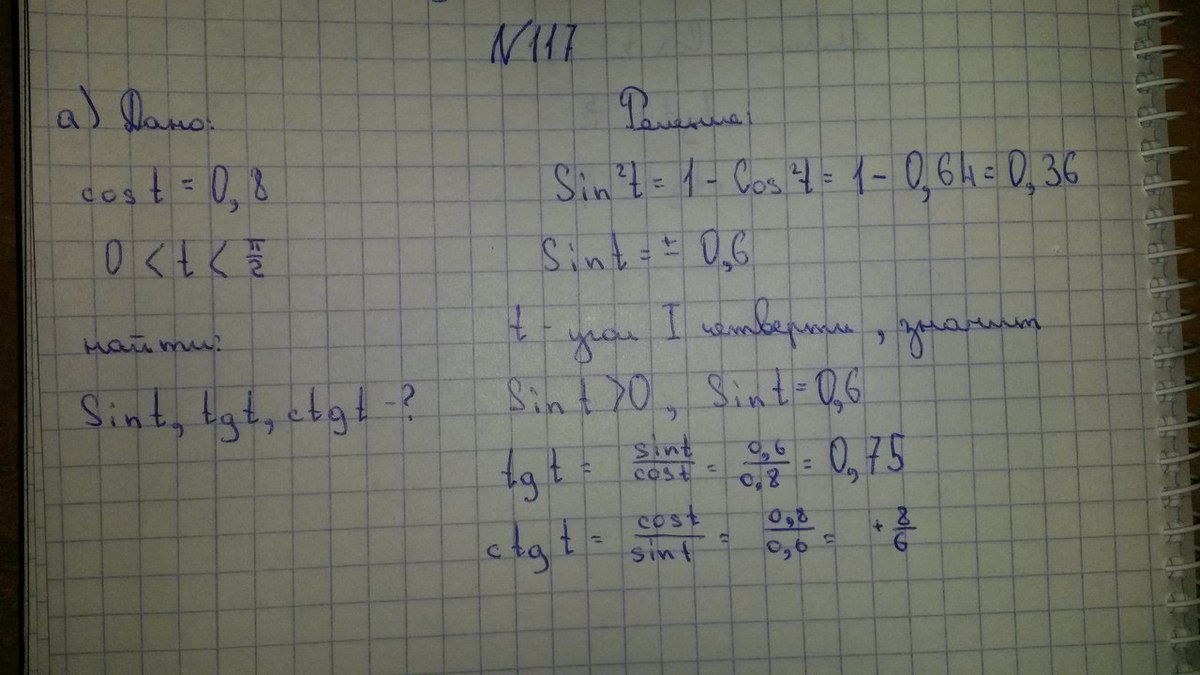 N117
а) Дано:
cos t = 0,8
0 < t < π/2
найти:
Sin t, tg t, ctg t -?
Решение:
Sin²t = 1 - Cos²t = 1 - 0,64 = 0,36
Sin t = ± 0,6
t - угол I четверти, значит
Sin t > 0, Sin t = 0,6
tg t = sin t/cos t = 0,6/0,8 = 0,75
ctg t = cos t/sin t = 0,8/0,6 = + 8/6